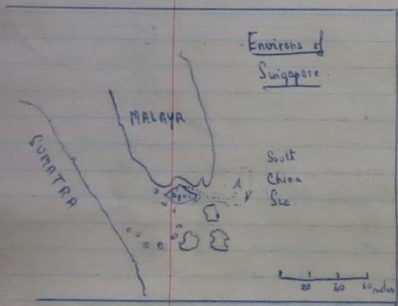 Environs of
Singapore.
MALAYA
SUMATRA
South
China
Sea
20 40 60 miles